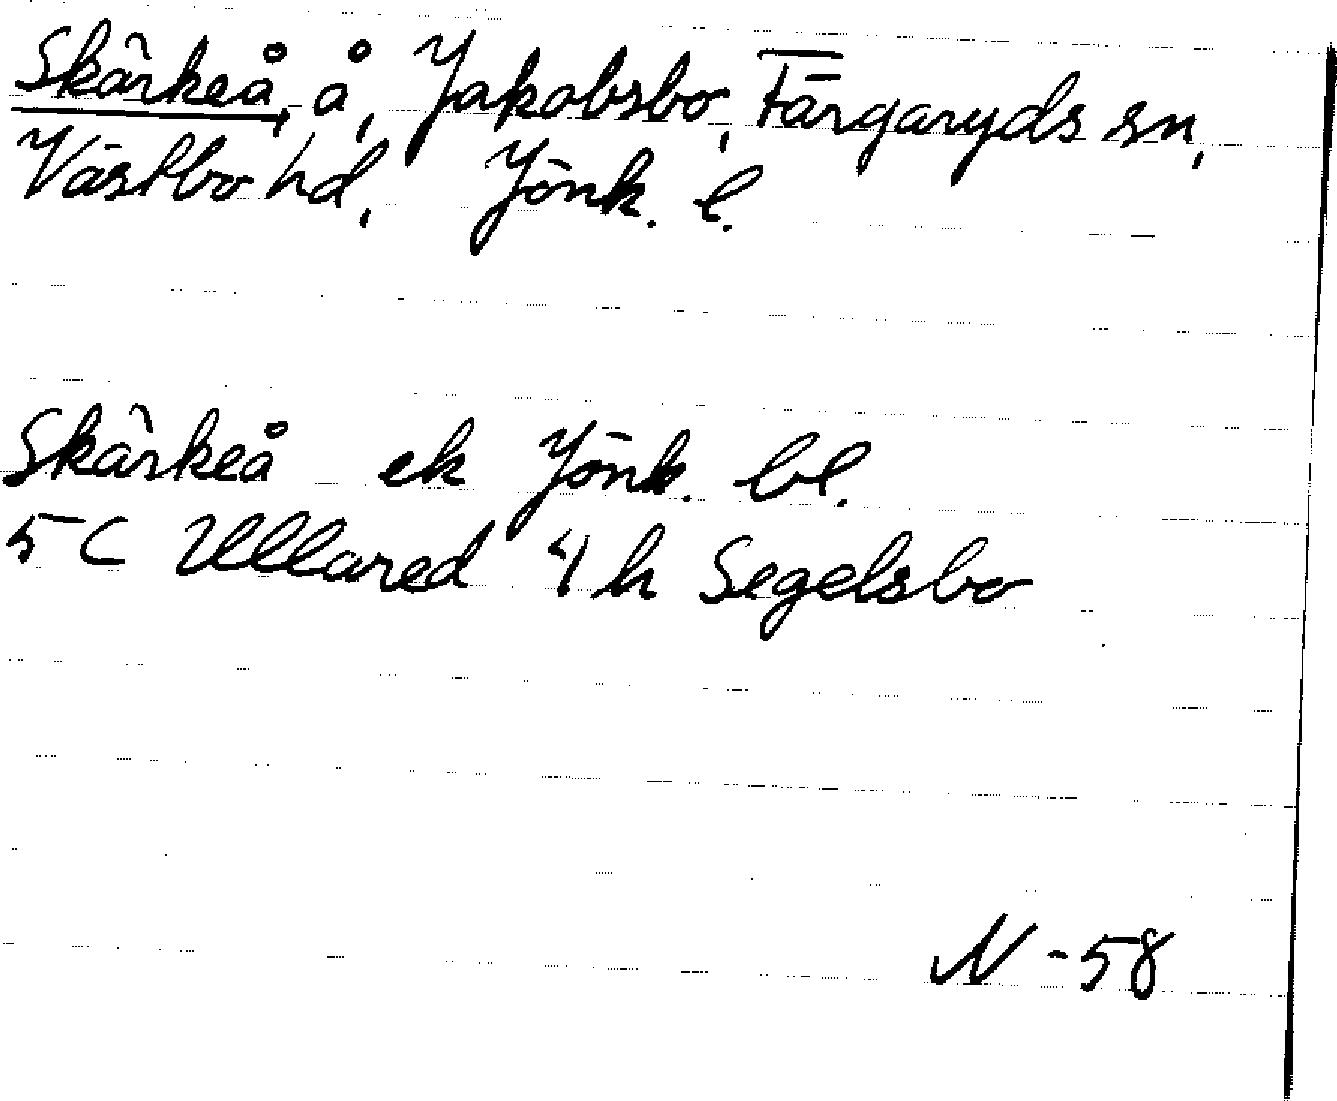 Skärkeå, å, Jakobsbo, Färgaryds sn,
Västbo hd, Jönk. l.
Skärkeå ek Jönk. bl.
5 C Ullared 4 h Segelsbo
N - 58